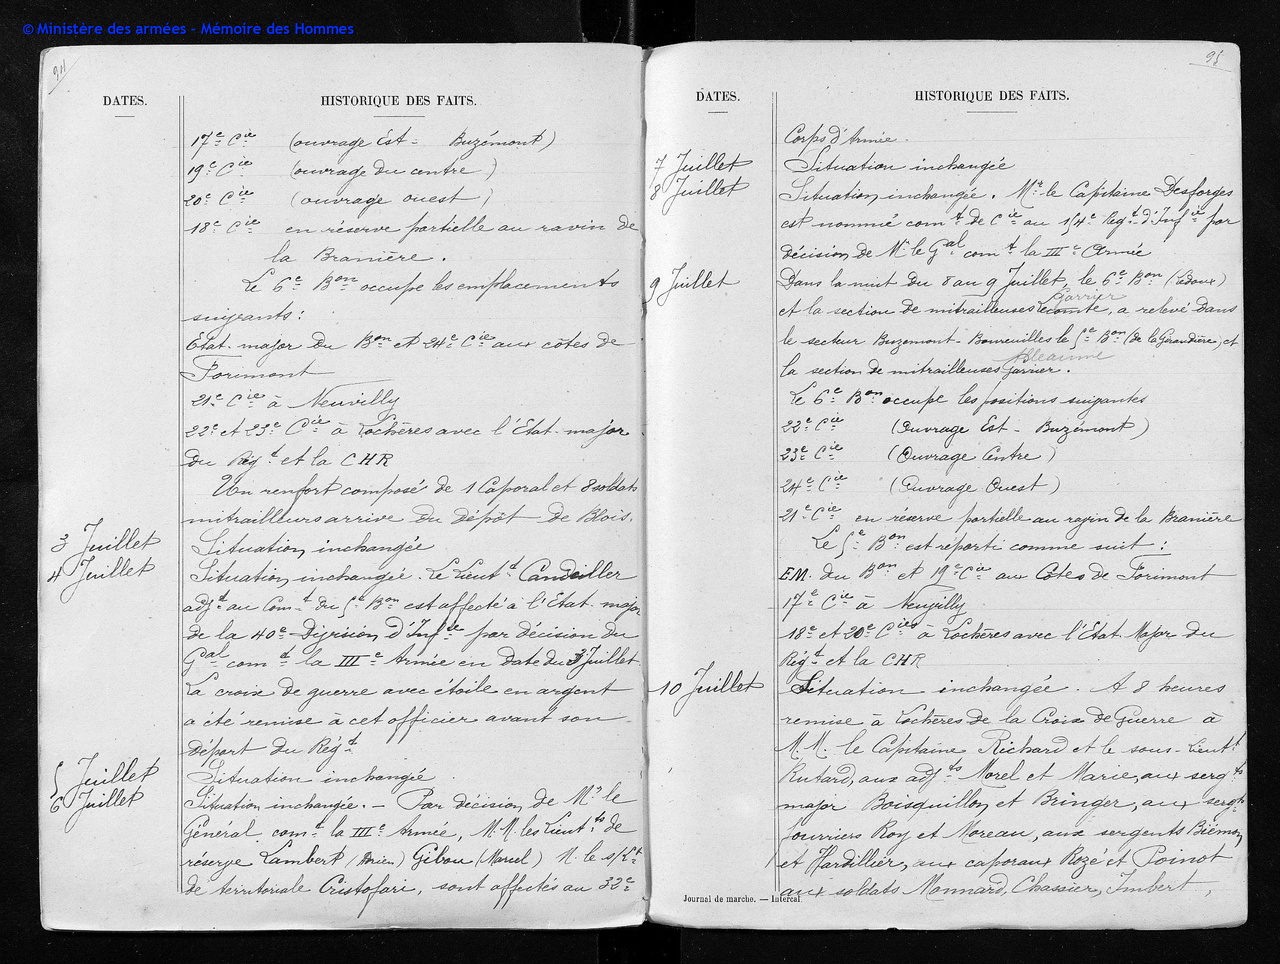 © Ministère des armées - Mémoire des Hommes
94
DATES.
HISTORIQUE DES FAITS.
17e Cie (ouvrage Est - Buzémont)
19e Cie (ouvrage du centre)
20e Cie (ouvrage ouest)
18e Cie en réserve partielle au ravin de
la Branière.
Le 6e Bon occupe les emplacements
suivants :
Etat-major du Bon et 24e Cie aux côtes de
Forimont
21e Cie à Neuvilly
22e et 23e Cie à Lochères avec l'Etat-major
du Régt et la CHR
Un renfort composé de 1 Caporal et 8 soldats
mitrailleurs arrive du dépôt de Blois.
3 Juillet Situation inchangée
4 Juillet Situation inchangée. Le Lieutt Candeiller
adjt au Comt du 5e Bon est affecté à l'Etat-major
de la 40e Division d'Infie par décision du
Gal comdt la IIIe Armée en date du 3 Juillet
La croix de guerre avec étoile en argent
a été remise à cet officier avant son
départ du Régt
5 Juillet Situation inchangée.
6 Juillet Situation inchangée. — Par décision de Mr le
Général comt la IIIe Armée, M.M. les Lieutts de
réserve Lambert Gibou (Marcel) M. le s/Lt
de territoriale Cristofari, sont affectés au 32e
95
DATES.
HISTORIQUE DES FAITS.
Corps d'Armée.
7 Juillet Situation inchangée
8 Juillet Situation inchangée. Mr le Capitaine Desforges
est nommé comt de Cie au Regt d'Infie par
décision de Mr le Gal comt la IIIe Armée
9 Juillet Dans la nuit du 8 au 9 Juillet, le 6e Bon (Ledoux)
Garrier
et la section de mitrailleuses Lecomte, a relevé dans
le secteur Buzemont-Boureuilles le 5e Bon (de la Girandière) et
Alleaume
la section de mitrailleuses Garrier.
Le 6e Bon occupe les positions suivantes
22e Cie (Ouvrage Est - Buzémont)
23e Cie (Ouvrage Centre)
24e Cie (Ouvrage Ouest)
21e Cie en réserve partielle au ravin de la Branière
Le 5e Bon est réparti comme suit :
EM. du Bon et 19e Cie aux Côtes de Forimont
17e Cie à Neuvilly
18e et 20e Cies à Lochères avec l'Etat-Major du
Régt et la CHR
10 Juillet Situation inchangée. A 8 heures
remise à Lochères de la Croix de Guerre à
M.M. le Capitaine Richard et le sous-Lieutt
Rutard, aux adjts Morel et Marie, aux sergts
major Boisquillon et Bringer, aux sergts
fourriers Roy et Moreau, aux sergents Biémon
et Hardillier, aux caporaux Rozé et Poinot
aux soldats Monnard, Chassier, Imbert,
Journal de marche. — Intercal.